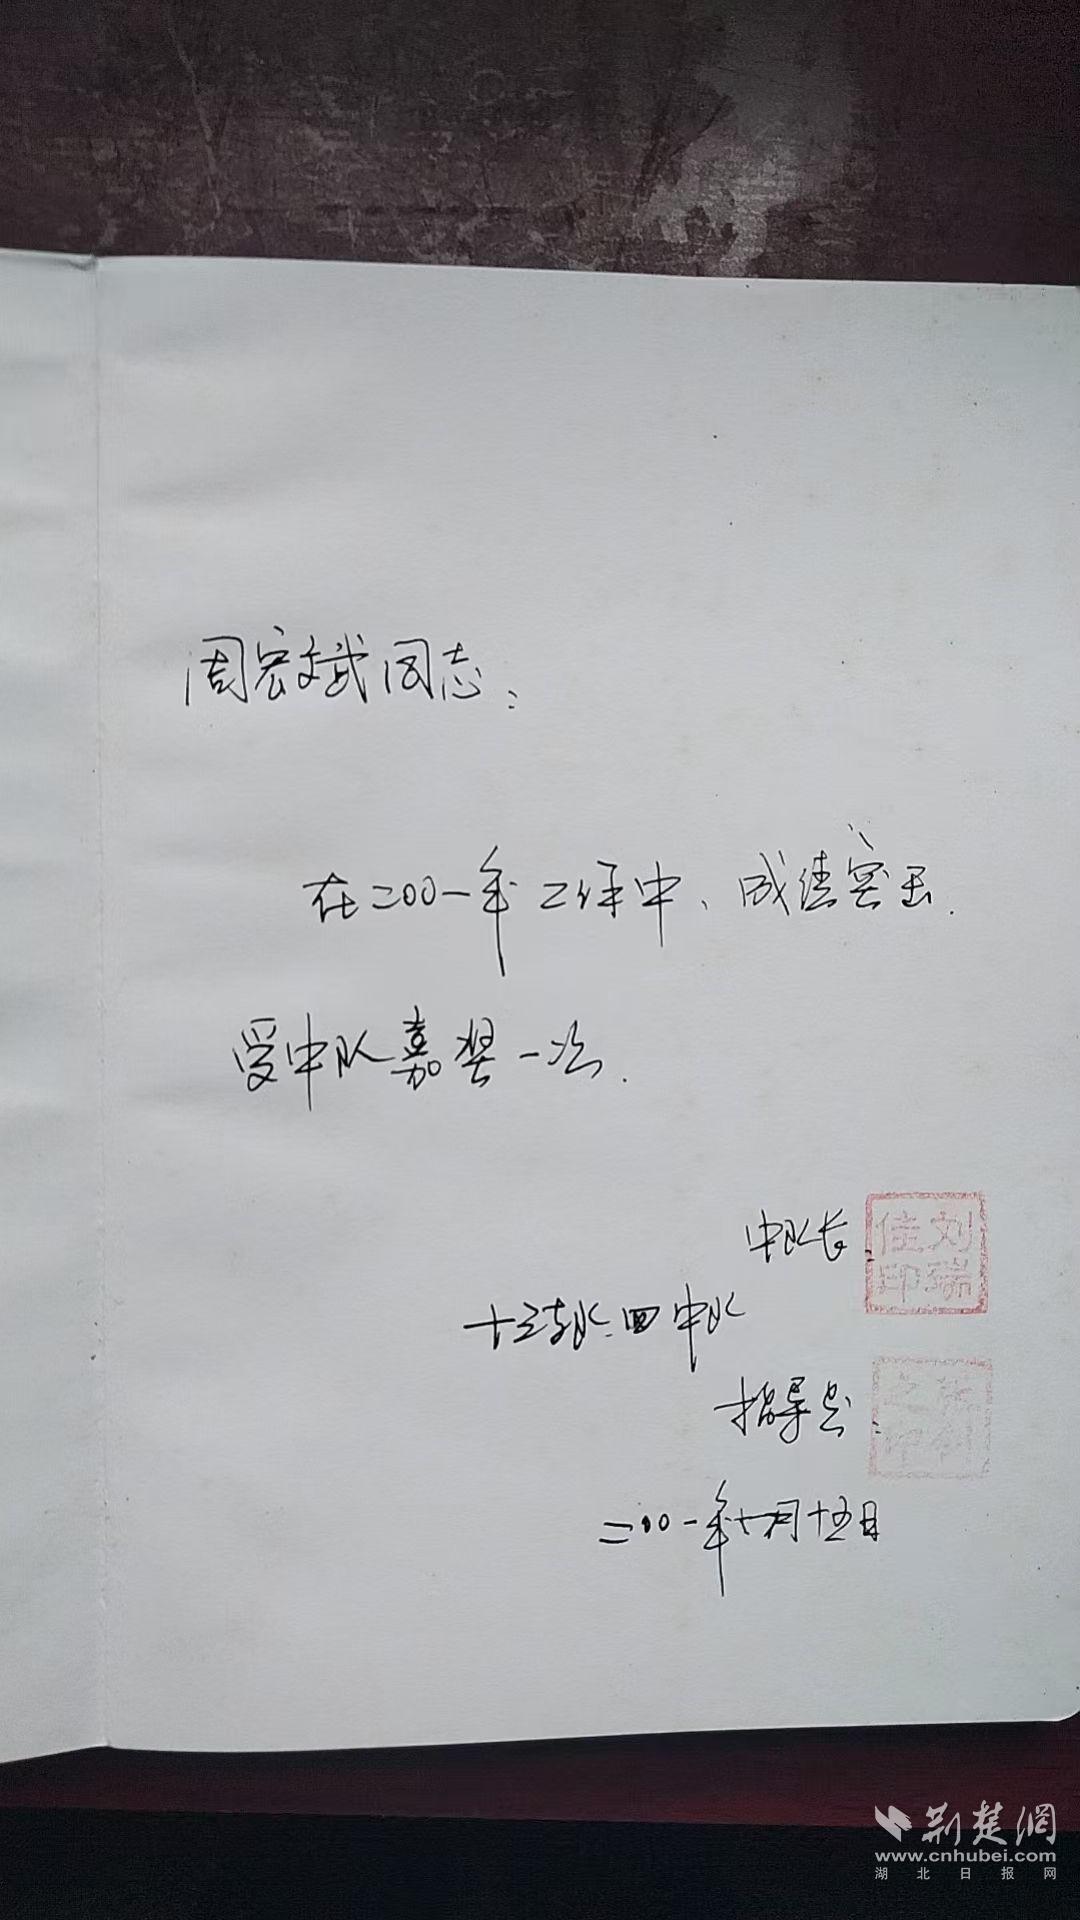 周宏斌同志：
在二00一年工作中、成绩突出.
受中队嘉奖一次.
中队长：
刘瑞佳印
十三支队四中队
指导员：
之印
二00一年十一月十五日
荆楚網
www.cnhubei.com
湖北日报网